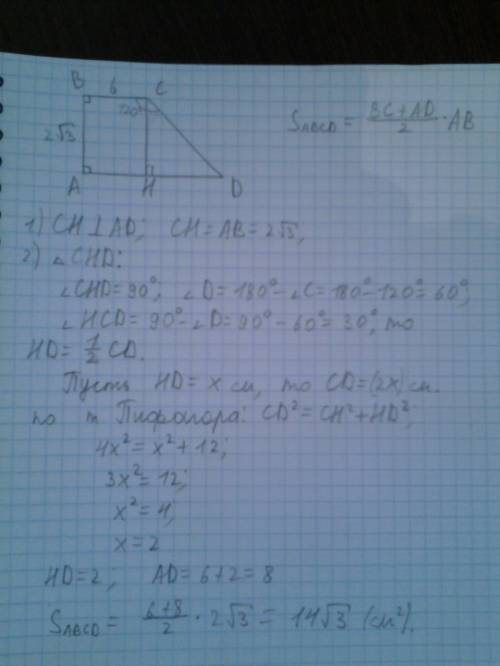 B 6 C
120°
2√3
A H D
S_ABCD = (BC+AD)/2 · AB
1) CH⊥AD; CH=AB=2√3;
2) △CHD:
∠CHD=90°; ∠D=180°-∠C=180°-120°=60°;
∠HCD=90°-∠D=90°-60°=30°, то
HD=1/2 CD.
Пусть HD=x см, то CD=(2x) см.
по т Пифагора: CD²=CH²+HD²;
4x²=x²+12;
3x²=12;
x²=4;
x=2
HD=2; AD=6+2=8
S_ABCD = (6+8)/2 · 2√3 = 14√3 (см²).